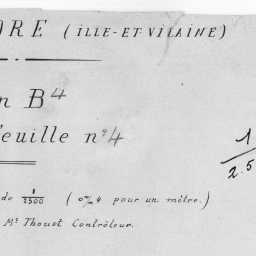 ORE (ILLE-ET-VILAINE)
n B4
euille n° 4
1
2.5
de 1/2500 (0m,4 pour un mètre.)
Mr Thouet Contrôleur.